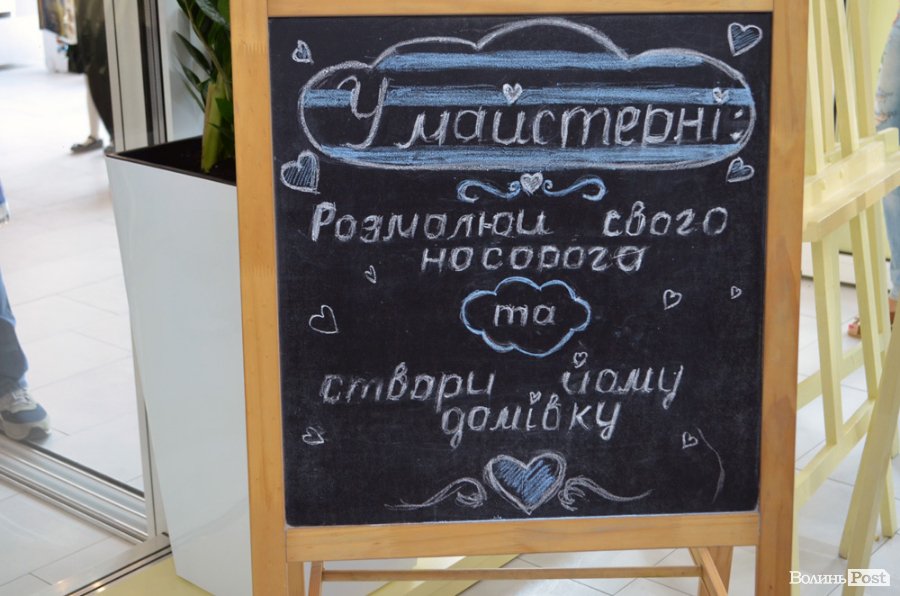 У майстерні:
Розмалюй свого
носорога
та
створи йому
домівку
ВолиньPost